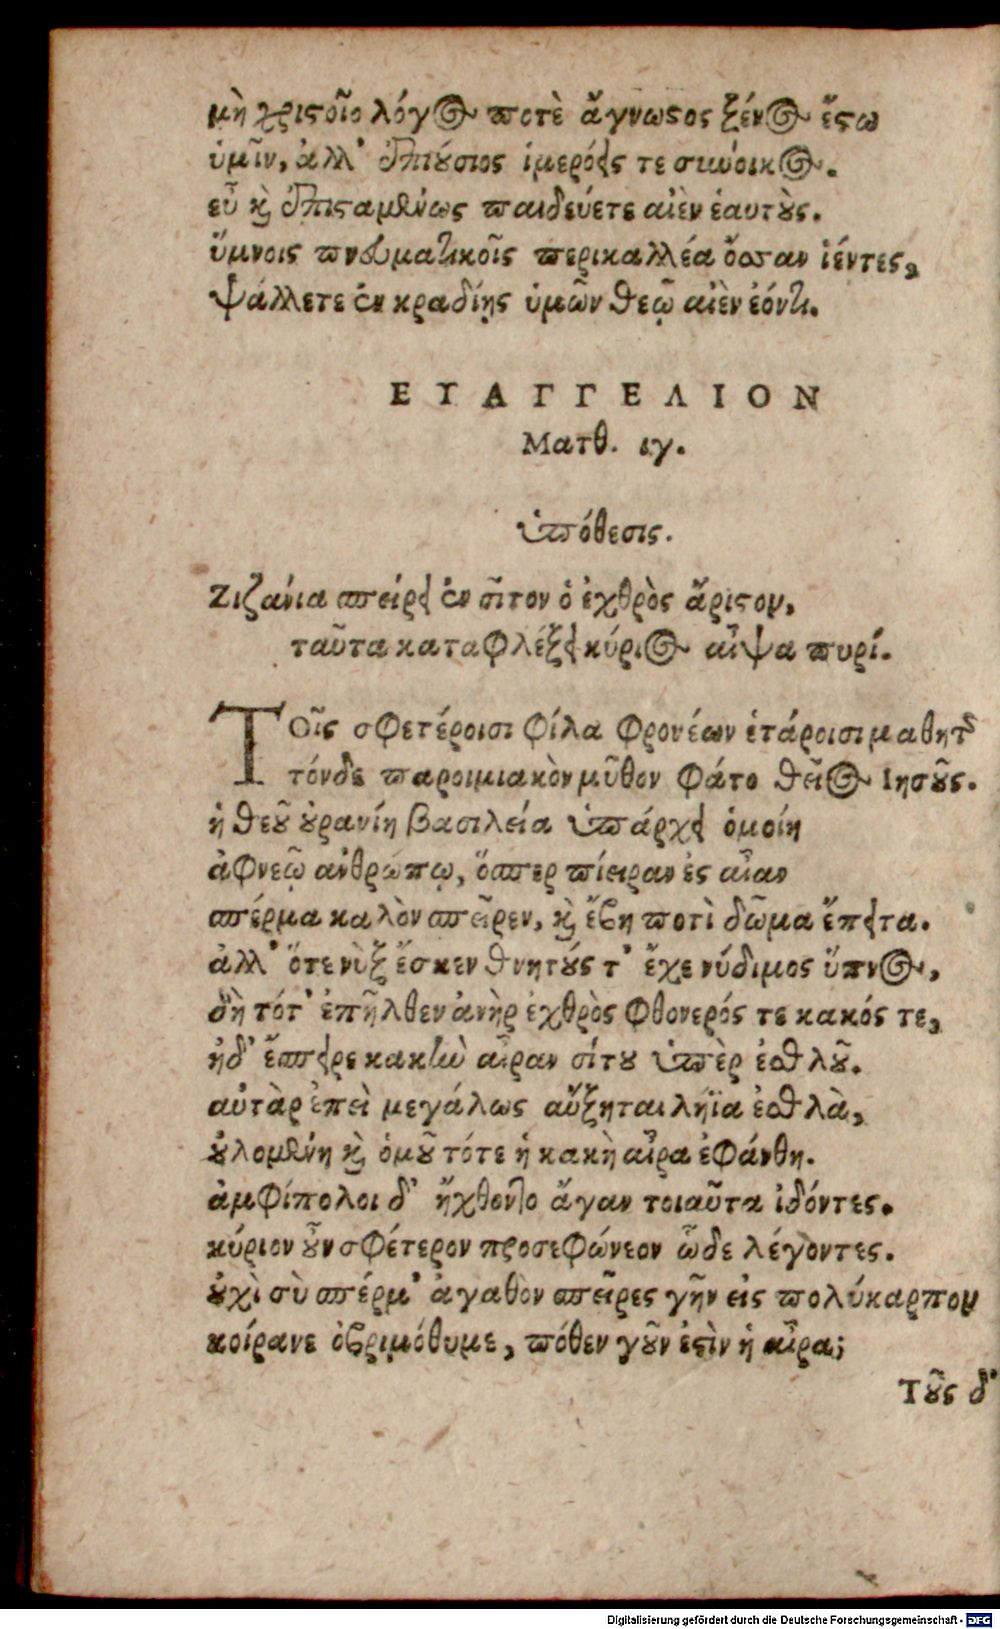 μὴ χριστοῖο λόγος ποτὲ ἄγνωστος ξένος ἔστω
ὑμῖν, ἀλλ' ἐπιούσιος ἱμερόεις τε σύνοικος.
εὖ καὶ ἐπισαμένως παιδεύετε αἰὲν ἑαυτοὺς.
ὕμνοις πνευματικοῖς περικαλλέα ὄσσαν ἱέντες,
ψάλλετε ἐν κραδίῃς ὑμῶν θεῷ αἰὲν ἐόντι.
ΕΥΑΓΓΕΛΙΟΝ
Ματθ. ιγ.
ὑπόθεσις.
Ζιζάνια σπείρει ἐν σῖτον ὁ ἐχθρὸς ἄριστον,
ταῦτα καταφλέξει κύριος αἶψα πυρί.
Τοῖς σφετέροισι φίλα φρονέων ἑτάροισι μαθητῶν
τόνδε παροιμιακὸν μῦθον φάτο θεῖος Ιησοῦς.
ἡ θεοῦ οὐρανίη βασιλεία ὑπάρχει ὁμοίη
ἀφνεῷ ἀνθρώπῳ, ὅσπερ πίειραν ἐς αἶαν
σπέρμα καλὸν σπεῖρεν, καὶ ἔβη ποτὶ δῶμα ἔπειτα.
ἀλλ' ὅτε νὺξ ἔσκεν θνητούς τ' ἔχε νύδιμος ὕπνος,
δὴ τότ' ἐπῆλθεν ἀνὴρ ἐχθρὸς φθονερός τε κακός τε,
ἠδ' ἔσπειρε κακὴν αἶραν σίτου ὑπὲρ ἐσθλοῦ.
αὐτὰρ ἐπεὶ μεγάλως αὔξηται λήϊα ἐσθλὰ,
οὐλομένη καὶ ὁμοῦ τότε ἡ κακὴ αἶρα ἐφάνθη.
ἀμφίπολοι δ' ἤχθοντο ἄγαν τοιαῦτα ἰδόντες.
κύριον οὖν σφέτερον προσεφώνεον ὧδε λέγοντες.
οὐχὶ σὺ σπέρμ' ἀγαθὸν σπεῖρες γῆν εἰς πολύκαρπον
κοίρανε ὀβριμόθυμε, πόθεν γοῦν ἐστὶν ἡ αἶρα;
Τοῦς δ'
Digitalisierung gefördert durch die Deutsche Forschungsgemeinschaft - DFG